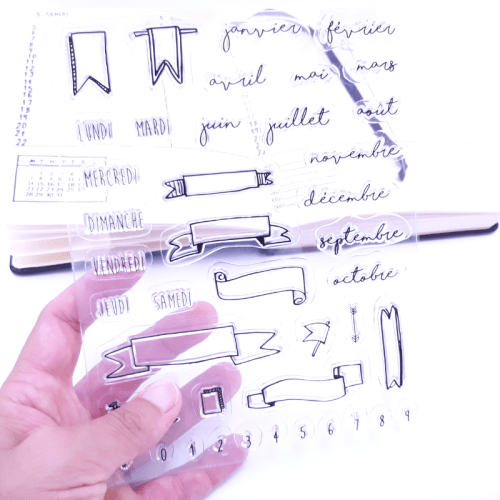 janvier février
avril mai mars
juin juillet août
LUNDI MARDI
novembre
MERCREDI
décembre
DIMANCHE
septembre
VENDREDI
octobre
JEUDI SAMEDI
0 1 2 3 4 5 6 7 8 9